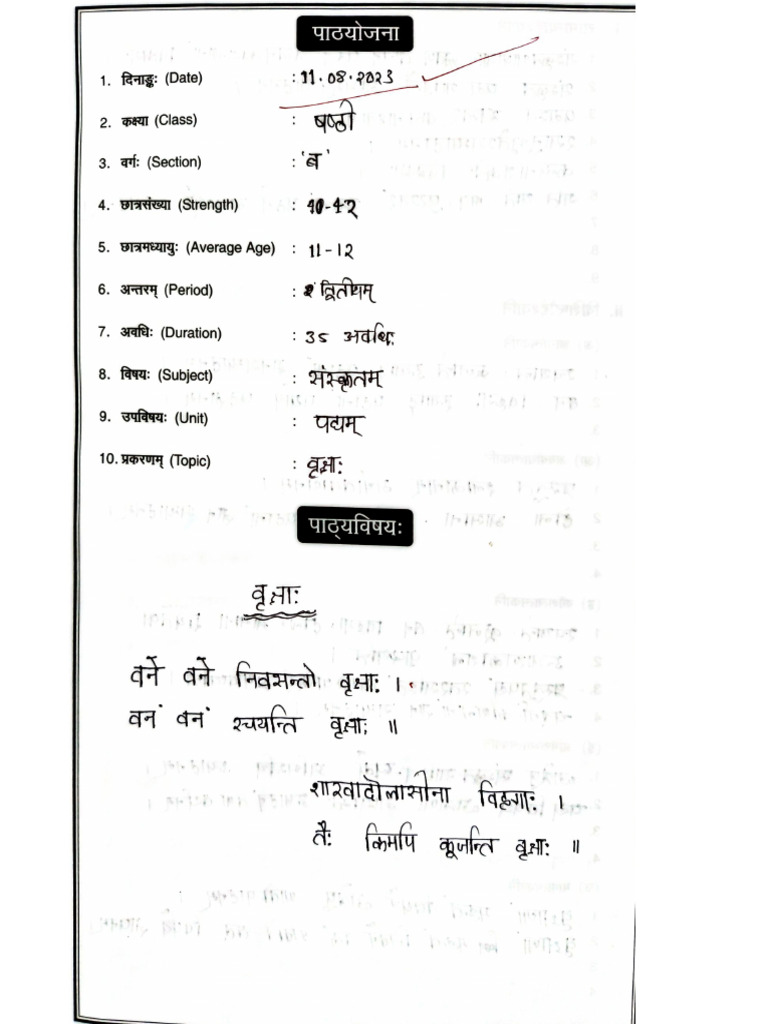 पाठयोजना
1. दिनाङ्कः (Date) : 11.08.2023
2. कक्ष्या (Class) : षष्ठी
3. वर्गः (Section) : 'ब'
4. छात्रसंख्या (Strength) : 40-42
5. छात्रमध्यायुः (Average Age) : 11-12
6. अन्तरम् (Period) : द्वितीयम्
7. अवधिः (Duration) : 35 अवधिः
8. विषयः (Subject) : संस्कृतम्
9. उपविषयः (Unit) : पद्यम्
10. प्रकरणम् (Topic) : वृक्षाः
पाठ्यविषयः
वृक्षाः
वने वने निवसन्तो वृक्षाः ।
वनं वनं रचयन्ति वृक्षाः ॥
शाखादोलासीना विहगाः ।
तैः किमपि कूजन्ति वृक्षाः ॥